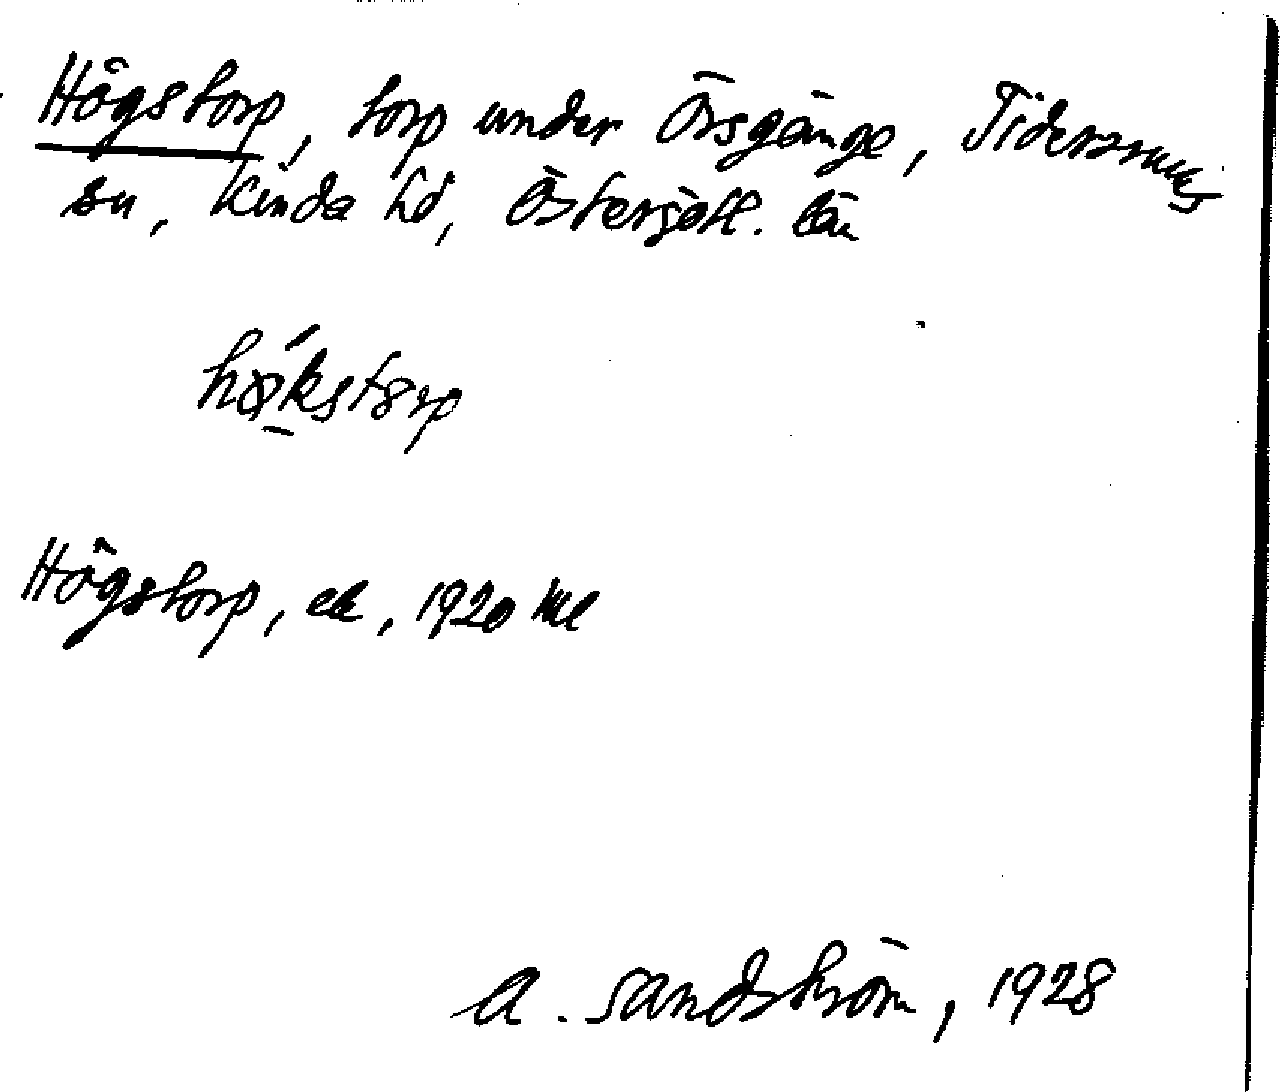 Högstorp, torp under Örsgänge, Tidersrums
sn, Kinda hd, Östergötl. län
høkstorp
Högstorp, ek, 1920
A. Sandström, 1928